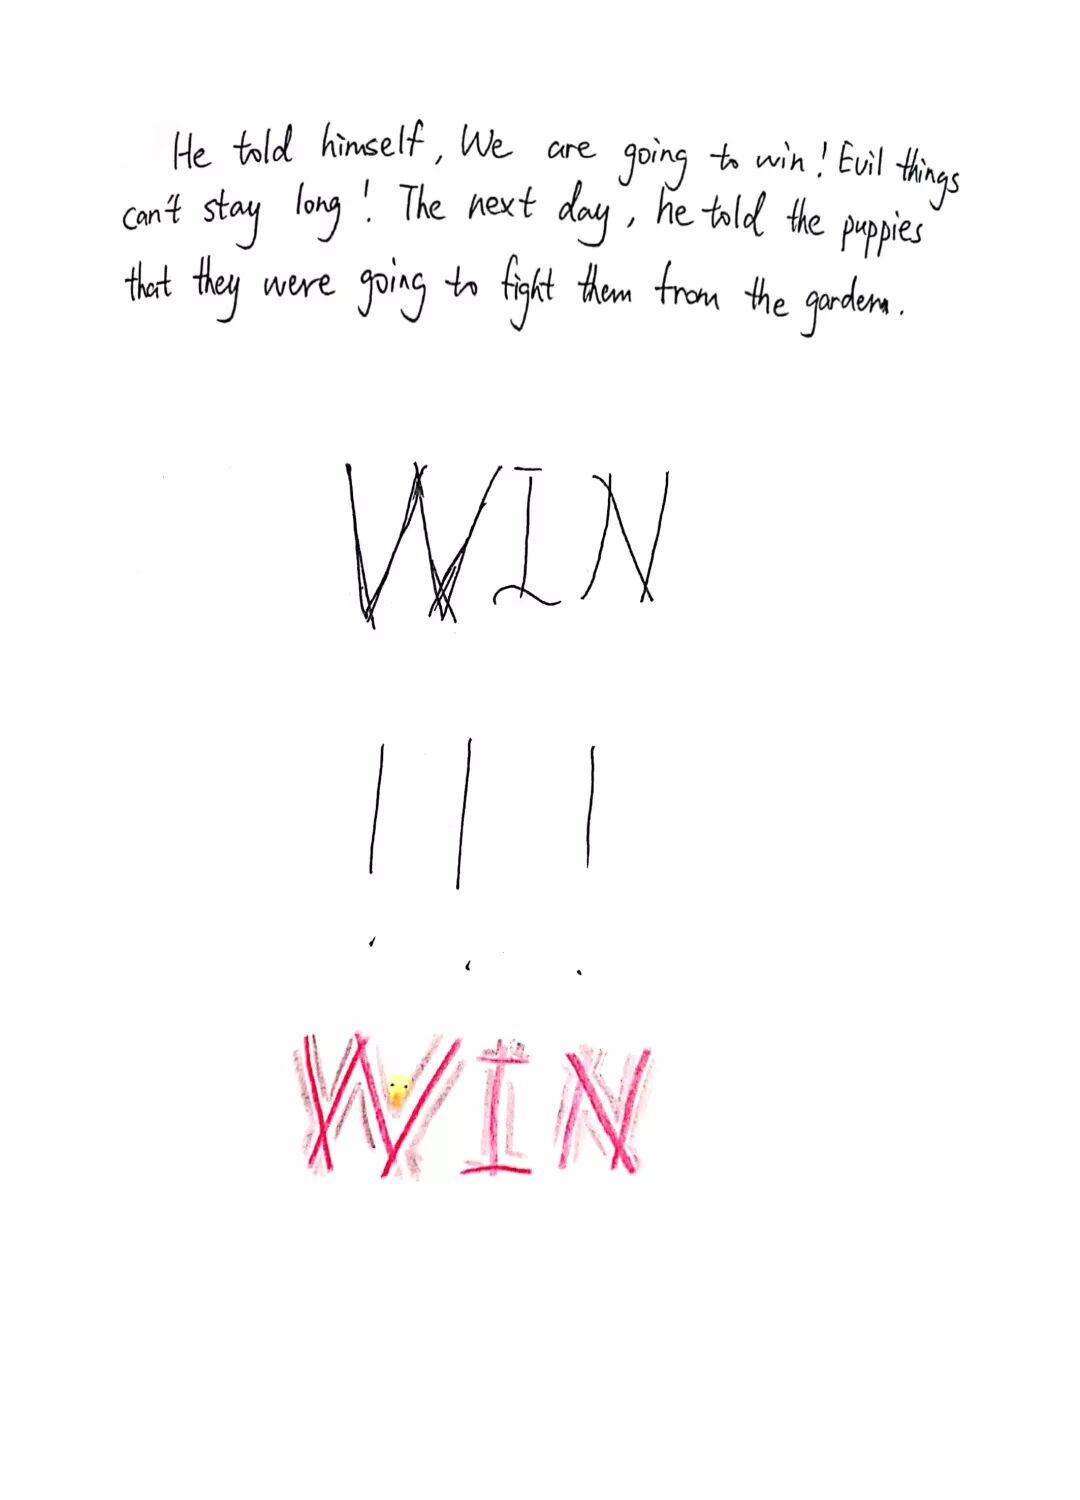 He told himself, We are going to win! Evil things
can't stay long! The next day, he told the puppies
that they were going to fight them from the garden.
WIN
!!!
WIN